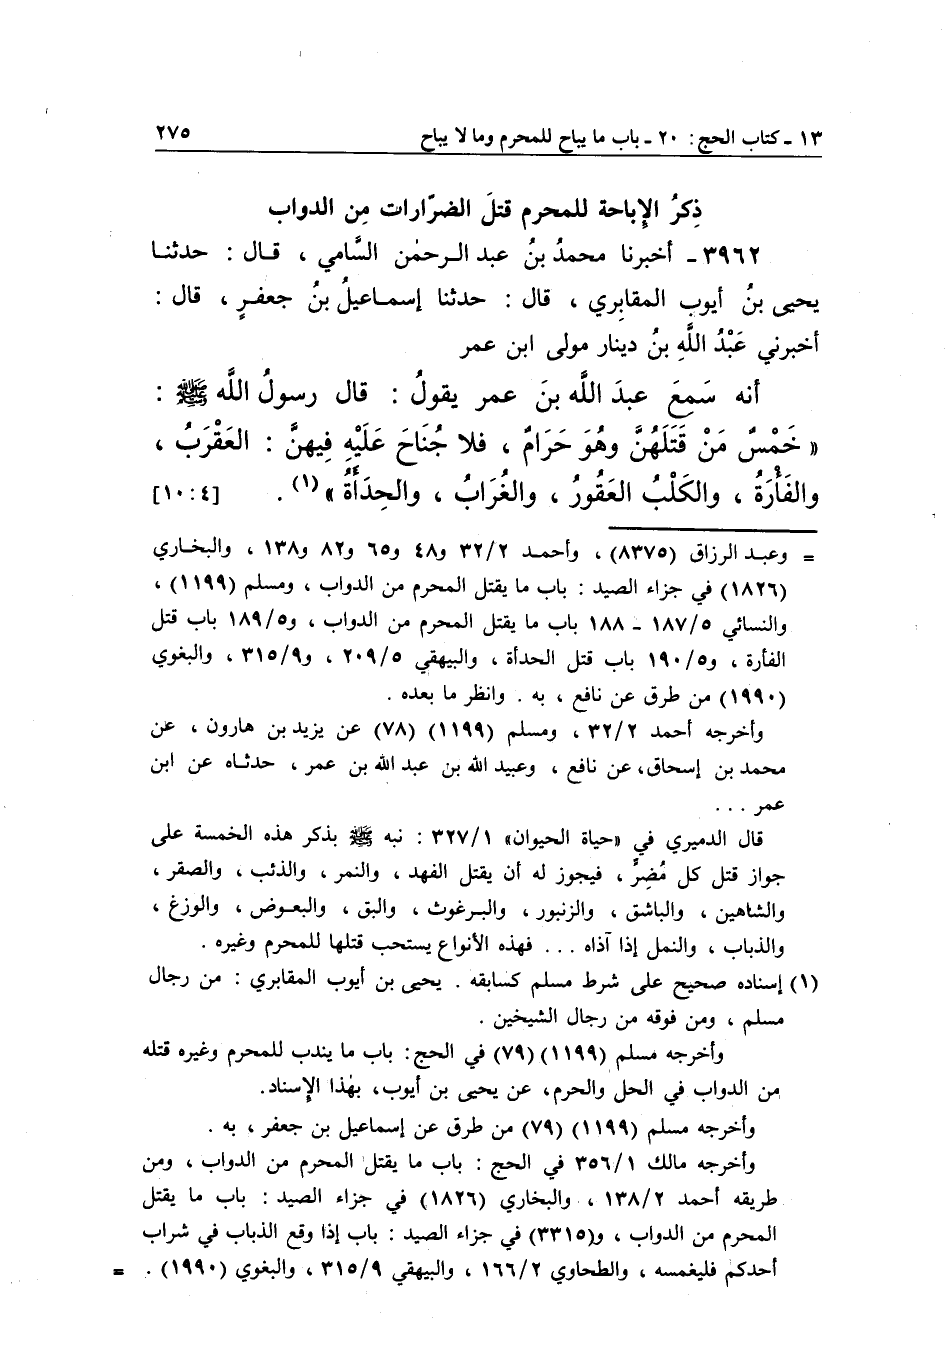 ١٣ ـ كتاب الحج : ٢٠ ـ باب ما يباح للمحرم وما لا يباح ٢٧٥
ذِكرُ الإباحة للمحرم قتلَ الضرّارات مِن الدواب
٣٩٦٢ ـ أخبرنا محمدُ بنُ عبد الرحمٰن السَّامي ، قال : حدثنا
يحيى بنُ أيوب المقابري ، قال : حدثنا إسماعيلُ بنُ جعفرٍ ، قال :
أخبرني عَبْدُ اللَّهِ بنُ دينار مولى ابن عمر
أنه سَمِعَ عبدَ اللَّه بنَ عمر يقولُ : قال رسولُ اللَّه ﷺ :
« خَمْسٌ مَنْ قَتَلَهُنَّ وهُوَ حَرَامٌ ، فلا جُنَاحَ عَلَيْهِ فِيهنَّ : العَقْرَبُ ،
والفَأْرَةُ ، والكَلْبُ العَقُورُ ، والغُرَابُ ، والحِدَأَةُ »(١) . [٤ : ١٠]
= وعبد الرزاق (٨٣٧٥) ، وأحمد ٣٢/٢ و٤٨ و٦٥ و٨٢ و١٣٨ ، والبخاري
(١٨٢٦) في جزاء الصيد : باب ما يقتل المحرم من الدواب ، ومسلم (١١٩٩) ،
والنسائي ١٨٧/٥ ـ ١٨٨ باب ما يقتل المحرم من الدواب ، و١٨٩/٥ باب قتل
الفأرة ، و١٩٠/٥ باب قتل الحدأة ، والبيهقي ٢٠٩/٥ ، و٣١٥/٩ ، والبغوي
(١٩٩٠) من طرق عن نافع ، به . وانظر ما بعده .
وأخرجه أحمد ٣٢/٢ ، ومسلم (١١٩٩) (٧٨) عن يزيد بن هارون ، عن
محمد بن إسحاق، عن نافع ، وعبيد الله بن عبد الله بن عمر ، حدثاه عن ابن
عمر . . .
قال الدميري في «حياة الحيوان» ٣٢٧/١ : نبه ﷺ بذكر هذه الخمسة على
جواز قتل كل مُضِرٍّ ، فيجوز له أن يقتل الفهد ، والنمر ، والذئب ، والصقر ،
والشاهين ، والباشق ، والزنبور ، والبرغوث ، والبق ، والبعوض ، والوزغ ،
والذباب ، والنمل إذا آذاه . . . فهذه الأنواع يستحب قتلها للمحرم وغيره .
(١) إسناده صحيح على شرط مسلم كسابقه . يحيى بن أيوب المقابري : من رجال
مسلم ، ومن فوقه من رجال الشيخين .
وأخرجه مسلم (١١٩٩) (٧٩) في الحج : باب ما يندب للمحرم وغيره قتله
من الدواب في الحل والحرم، عن يحيى بن أيوب، بهٰذا الإسناد.
وأخرجه مسلم (١١٩٩) (٧٩) من طرق عن إسماعيل بن جعفر ، به .
وأخرجه مالك ٣٥٦/١ في الحج : باب ما يقتل المحرم من الدواب ، ومن
طريقه أحمد ١٣٨/٢ ، والبخاري (١٨٢٦) في جزاء الصيد : باب ما يقتل
المحرم من الدواب ، و(٣٣١٥) في جزاء الصيد : باب إذا وقع الذباب في شراب
أحدكم فليغمسه ، والطحاوي ١٦٦/٢ ، والبيهقي ٣١٥/٩ ، والبغوي (١٩٩٠) . =